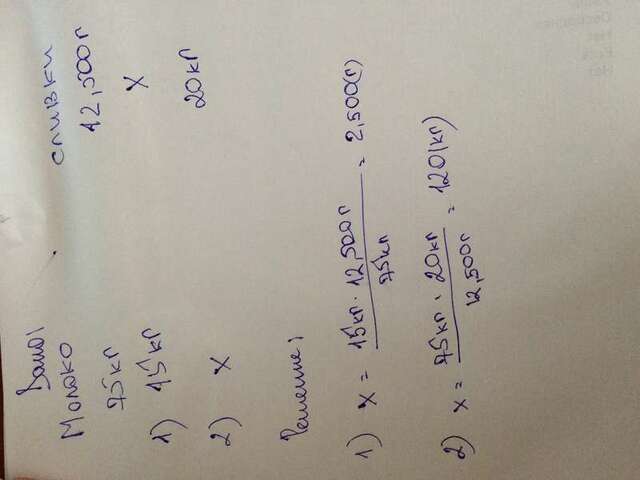 Дано:
Молоко сливки
75кг 12,500г
1) 15кг x
2) x 20кг
Решение:
1) x = 15кг · 12,500г / 75кг = 2,500(г)
2) x = 75кг · 20кг / 12,500г = 120(кг)